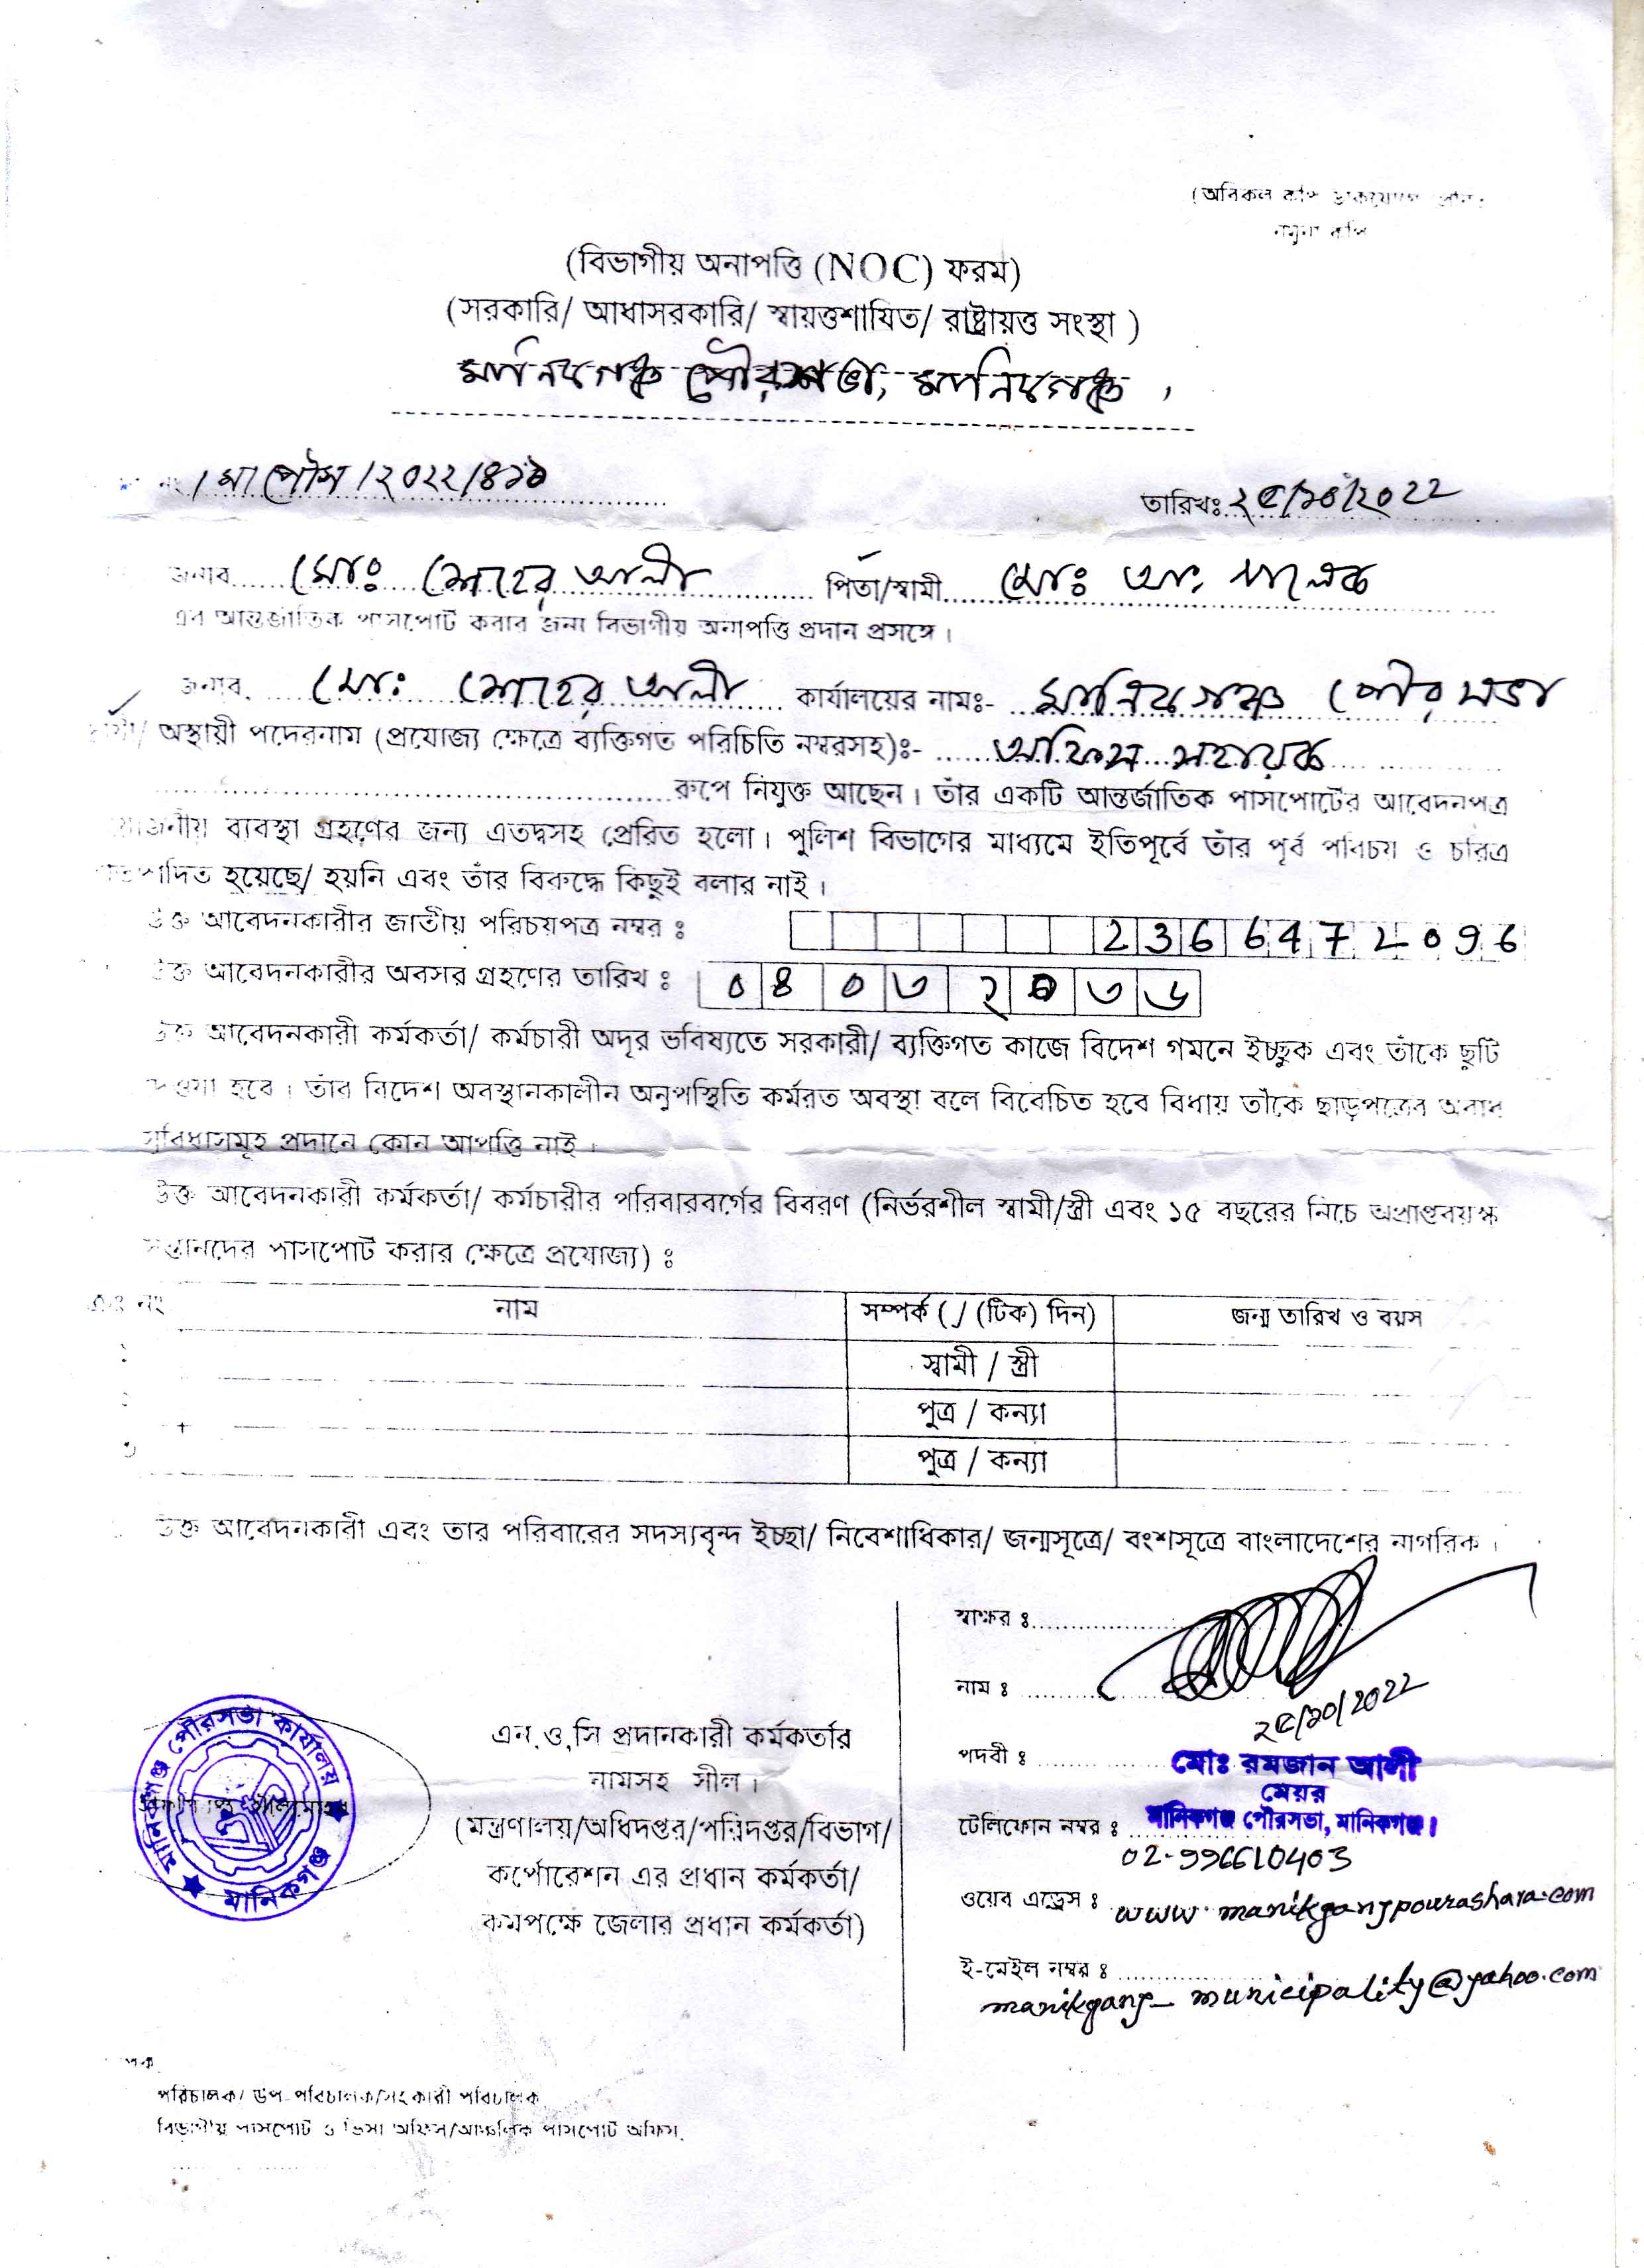 (অবিকল কপি
নমুনা কপি
(বিভাগীয় অনাপত্তি (NOC) ফরম)
(সরকারি/ আধাসরকারি/ স্বায়ত্তশাযিত/ রাষ্ট্রায়ত্ত সংস্থা )
মানিকগঞ্জ পৌরসভা, মানিকগঞ্জ ,
নং / মা পৌস /২০২২/৪১৯ তারিখঃ ২৫/১০/২০২২
জনাব মোঃ মোহের আলী পিতা/স্বামী মোঃ আঃ মালেক
এর আন্তর্জাতিক পাসপোর্ট করার জন্য বিভাগীয় অনাপত্তি প্রদান প্রসঙ্গে।
জনাব, মোঃ মোহের আলী কার্যালয়ের নামঃ- মানিকগঞ্জ পৌরসভা
স্থায়ী/ অস্থায়ী পদেরনাম (প্রযোজ্য ক্ষেত্রে ব্যক্তিগত পরিচিতি নম্বরসহ)ঃ- অফিস সহায়ক
রুপে নিযুক্ত আছেন। তাঁর একটি আন্তর্জাতিক পাসপোর্টের আবেদনপত্র
প্রয়োজনীয় ব্যবস্থা গ্রহণের জন্য এতদ্বসহ প্রেরিত হলো। পুলিশ বিভাগের মাধ্যমে ইতিপূর্বে তাঁর পূর্ব পরিচয় ও চরিত্র
প্রতিপাদিত হয়েছে/ হয়নি এবং তাঁর বিরুদ্ধে কিছুই বলার নাই।
উক্ত আবেদনকারীর জাতীয় পরিচয়পত্র নম্বর ঃ 2366472096
উক্ত আবেদনকারীর অবসর গ্রহণের তারিখ ঃ ০৪০৩২০৩৬
উক্ত আবেদনকারী কর্মকর্তা/ কর্মচারী অদূর ভবিষ্যতে সরকারী/ ব্যক্তিগত কাজে বিদেশ গমনে ইচ্ছুক এবং তাঁকে ছুটি
দেওয়া হবে। তাঁর বিদেশ অবস্থানকালীন অনুপস্থিতি কর্মরত অবস্থা বলে বিবেচিত হবে বিধায় তাঁকে ছাড়পত্রের অবাধ
সুবিধাসমূহ প্রদানে কোন আপত্তি নাই।
উক্ত আবেদনকারী কর্মকর্তা/ কর্মচারীর পরিবারবর্গের বিবরণ (নির্ভরশীল স্বামী/স্ত্রী এবং ১৫ বছরের নিচে অপ্রাপ্তবয়স্ক
সন্তানদের পাসপোর্ট করার ক্ষেত্রে প্রযোজ্য) ঃ
নং নাম সম্পর্ক (√ (টিক) দিন) জন্ম তারিখ ও বয়স
স্বামী / স্ত্রী
পুত্র / কন্যা
৩ পুত্র / কন্যা
উক্ত আবেদনকারী এবং তার পরিবারের সদস্যবৃন্দ ইচ্ছা/ নিবেশাধিকার/ জন্মসূত্রে/ বংশসূত্রে বাংলাদেশের নাগরিক।
স্বাক্ষর ঃ
নাম ঃ
২৫/১০/২০২২
এন,ও,সি প্রদানকারী কর্মকর্তার
নামসহ সীল।
(মন্ত্রণালয়/অধিদপ্তর/পরিদপ্তর/বিভাগ/
কর্পোরেশন এর প্রধান কর্মকর্তা/
কমপক্ষে জেলার প্রধান কর্মকর্তা)
মানিকগঞ্জ পৌরসভা কার্যালয়
মানিকগঞ্জ
পদবী ঃ মোঃ রমজান আলী
মেয়র
টেলিফোন নম্বর ঃ মানিকগঞ্জ পৌরসভা, মানিকগঞ্জ।
02-996610403
ওয়েব এড্রেস ঃ www.manikganjpourashava.com
ই-মেইল নম্বর ঃ
manikganj_municipality@yahoo.com
পরিচালক/ উপ-পরিচালক/সহকারী পরিচালক
বিভাগীয় পাসপোর্ট ও ভিসা অফিস/আঞ্চলিক পাসপোর্ট অফিস,